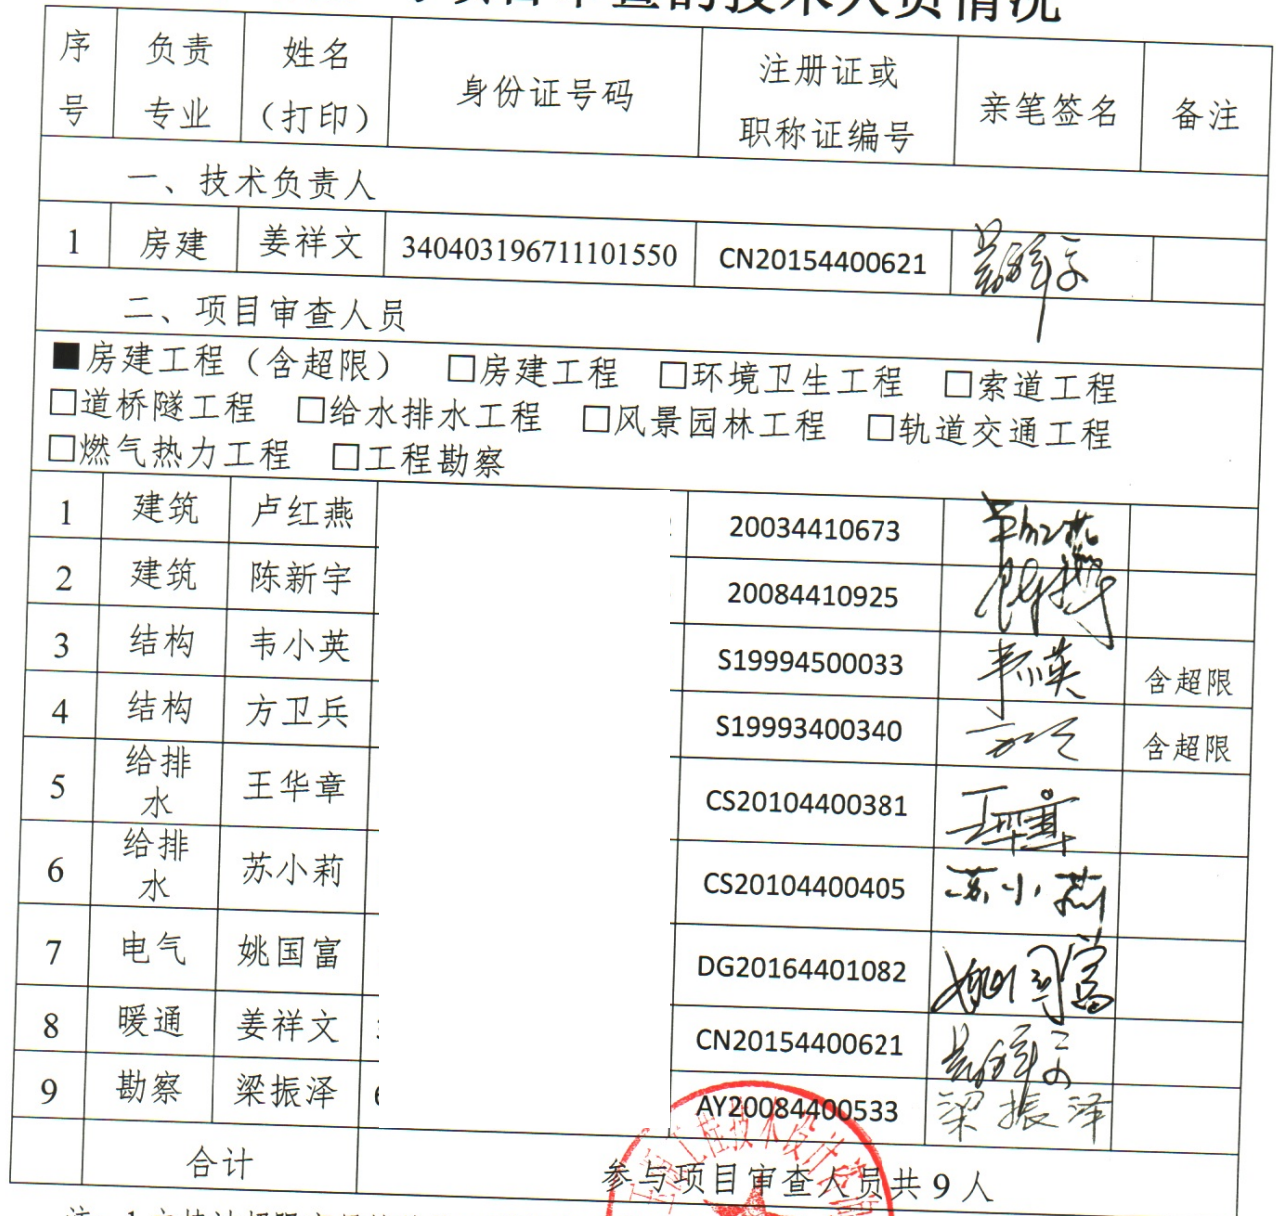 项目审查的技术人员情况
序号 负责专业 姓名（打印） 身份证号码 注册证或职称证编号 亲笔签名 备注
一、技术负责人
1 房建 姜祥文 340403196711101550 CN20154400621 姜祥文
二、项目审查人员
■房建工程（含超限） □房建工程 □环境卫生工程 □索道工程
□道桥隧工程 □给水排水工程 □风景园林工程 □轨道交通工程
□燃气热力工程 □工程勘察
1 建筑 卢红燕 20034410673 卢红燕
2 建筑 陈新宇 20084410925
3 结构 韦小英 S19994500033 韦小英 含超限
4 结构 方卫兵 S19993400340 含超限
5 给排水 王华章 CS20104400381 王华章
6 给排水 苏小莉 CS20104400405 苏小莉
7 电气 姚国富 DG20164401082 姚国富
8 暖通 姜祥文 CN20154400621 姜祥文
9 勘察 梁振泽 AY20084400533 梁振泽
合计 参与项目审查人员共9人
工程技术设计咨